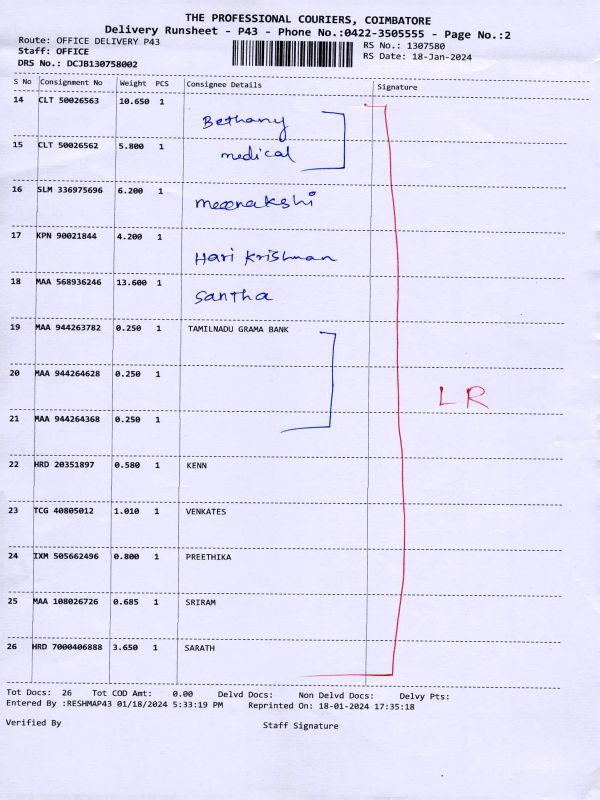 THE PROFESSIONAL COURIERS, COIMBATORE
Delivery Runsheet - P43 - Phone No.:0422-3505555 - Page No.:2
Route: OFFICE DELIVERY P43 RS No.: 1307580
Staff: OFFICE RS Date: 18-Jan-2024
DRS No.: DCJB130758002
S No Consignment No Weight PCS Consignee Details Signature
14 CLT 50026563 10.650 1
Bethany
15 CLT 50026562 5.800 1
medical
16 SLM 336975696 6.200 1
meenakshi
17 KPN 90021844 4.200 1
Hari Krishnan
18 MAA 568936246 13.600 1
Santha
19 MAA 944263782 0.250 1 TAMILNADU GRAMA BANK
20 MAA 944264628 0.250 1
LR
21 MAA 944264368 0.250 1
22 HRD 20351897 0.580 1 KENN
23 TCG 40805012 1.010 1 VENKATES
24 IXM 505662496 0.800 1 PREETHIKA
25 MAA 108026726 0.685 1 SRIRAM
26 HRD 7000406888 3.650 1 SARATH
Tot Docs: 26 Tot COD Amt: 0.00 Delvd Docs: Non Delvd Docs: Delvy Pts:
Entered By :RESHMAP43 01/18/2024 5:33:19 PM Reprinted On: 18-01-2024 17:35:18
Verified By Staff Signature